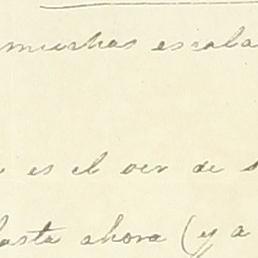 muchas escala
es el ver de s
hasta ahora (y a